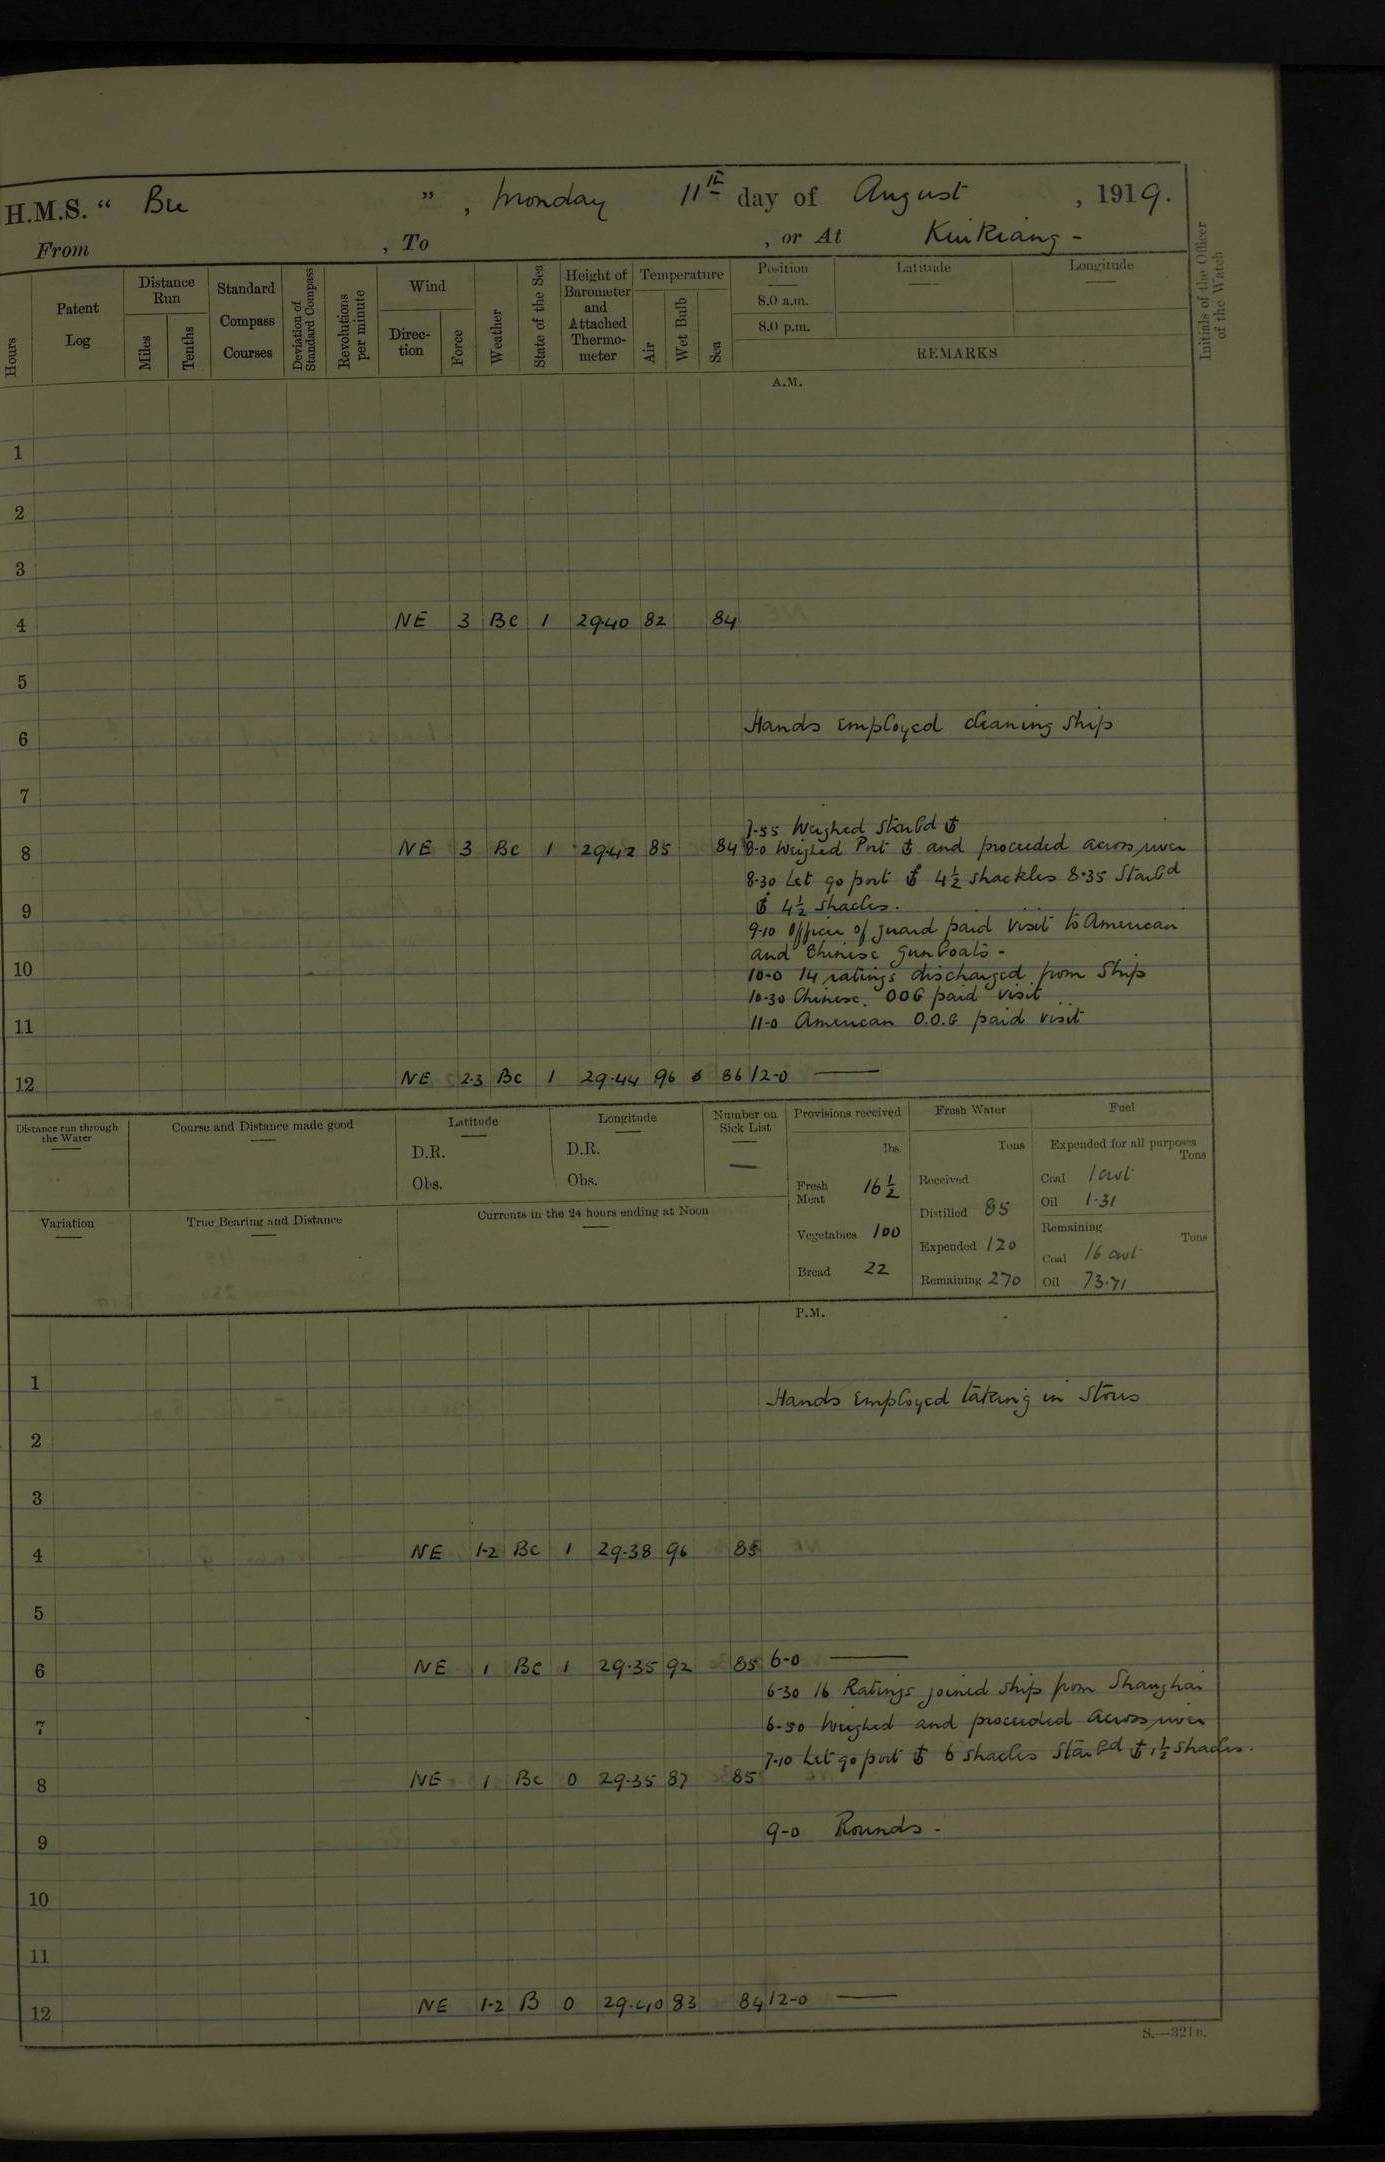 H.M.S. " Bee ", Monday 11th day of August, 1919.
From , To , or At Kiukiang -
Hours
Patent Log
Distance Run
Miles
Tenths
Standard Compass Courses
Deviation of Standard Compass
Revolutions per minute
Wind
Direc-tion
Force
Weather
State of the Sea
Height of Barometer and Attached Thermo-meter
Temperature
Air
Wet Bulb
Sea
Position
Latitude
Longitude
8.0 a.m.
8.0 p.m.
REMARKS
Initials of the Officer of the Watch
A.M.
1
2
3
4 NE 3 Bc 1 29.40 82 84
5
6 Hands employed cleaning ship
7
7-55 Weighed Starbd ⚓
8 NE 3 Bc 1 29.42 85 84 8-0 Weighed Port ⚓ and proceeded across river
8-30 Let go port ⚓ 4½ shackles 8-35 Starbd
9 ⚓ 4½ shacles.
9-10 Officer of guard paid visit to American
and Chinese gunboats -
10 10-0 14 ratings discharged from ship
10-30 Chinese. OOG paid visit
11 11-0 American O.O.G paid visit
12 NE 2.3 Bc 1 29.44 96 86 12-0 —
Distance run through the Water
Course and Distance made good
Latitude
D.R.
Obs.
Longitude
D.R.
Obs.
Number on Sick List
—
Provisions received
lbs.
Fresh Meat 16½
Vegetables 100
Bread 22
Fresh Water
Tons
Received
Distilled 85
Expended 120
Remaining 270
Fuel
Expended for all purposes
Tons
Coal 1 cwt
Oil 1.31
Remaining
Tons
Coal 16 cwt
Oil 73.71
Variation
True Bearing and Distance
Currents in the 24 hours ending at Noon
P.M.
1 Hands employed taking in stores
2
3
4 NE 1-2 Bc 1 29.38 96 85
5
6 NE 1 Bc 1 29.35 92 85 6-0 —
6-30 16 Ratings joined ship from Shanghai
7 6-50 Weighed and proceeded across river
7-10 Let go port ⚓ 6 shacles Starbd ⚓ 1½ shacles.
8 NE 1 Bc 0 29.35 87 85
9 9-0 Rounds -
10
11
12 NE 1-2 B 0 29.40 83 84 12-0 —
S.—321B.